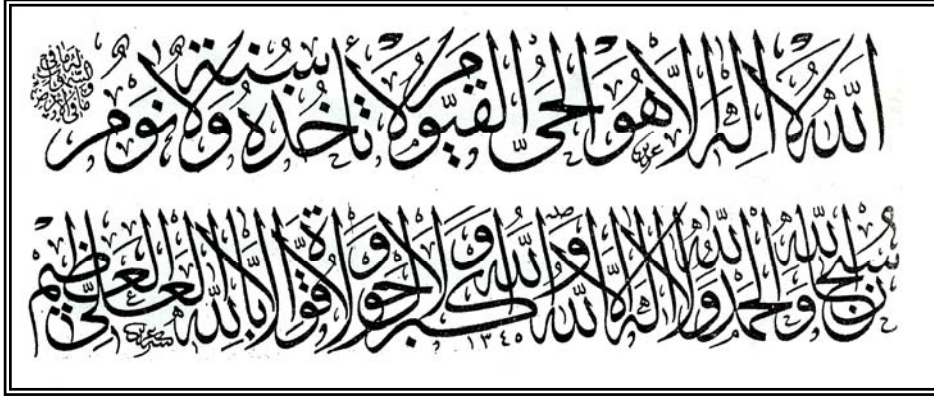 اللّٰه لا اله الا هو الحى القيوم لا تأخذه سنة ولا نوم له ما فى السموات وما فى الارض
سبحان الله والحمد لله ولا اله الا الله والله اكبر ولا حول ولا قوة الا بالله العلى العظيم ١٣٤٥